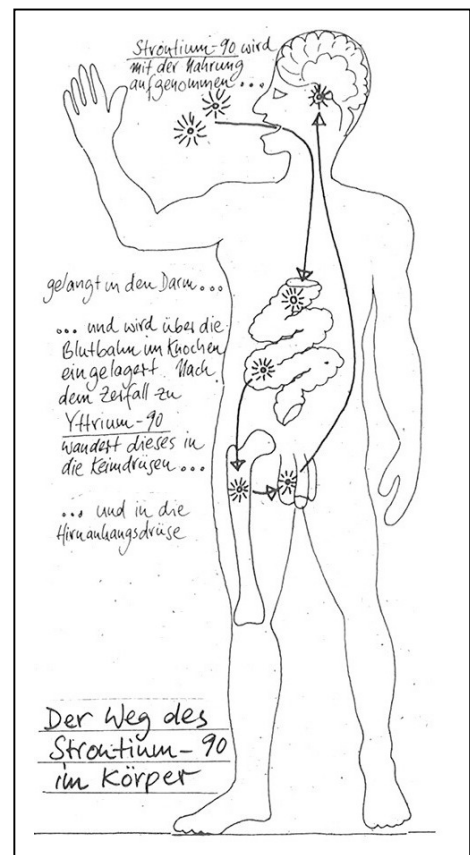 Strontium-90 wird
mit der Nahrung
aufgenommen...
gelangt in den Darm...
... und wird über die
Blutbahn im Knochen
eingelagert. Nach
dem Zerfall zu
Yttrium-90
wandert dieses in
die Keimdrüsen...
... und in die
Hirnanhangsdrüse
Der Weg des
Strontium-90
im Körper